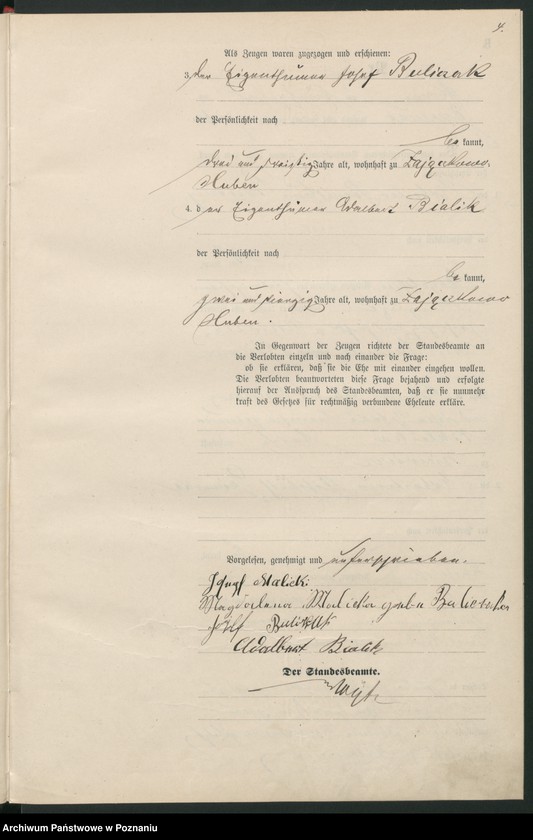 4.
Als Zeugen waren zugezogen und erschienen:
3. der Eigenthümer Josef
der Persönlichkeit nach
be kannt,
drei und dreißig Jahre alt, wohnhaft zu Zajączkowo
Huben
4. d er Eigenthümer Adalbert Bialik
der Persönlichkeit nach
be kannt,
zwei und vierzig Jahre alt, wohnhaft zu Zajączkowo
Huben.
In Gegenwart der Zeugen richtete der Standesbeamte an
die Verlobten einzeln und nach einander die Frage:
ob sie erklären, daß sie die Ehe mit einander eingehen wollen.
Die Verlobten beantworteten diese Frage bejahend und erfolgte
hierauf der Ausspruch des Standesbeamten, daß er sie nunmehr
kraft des Gesetzes für rechtmäßig verbundene Eheleute erkläre.
Vorgelesen, genehmigt und unterschrieben.
Józef Malicki
Magdalena Malicka geb
Josef
Adalbert Bialik
Der Standesbeamte.
Archiwum Państwowe w Poznaniu